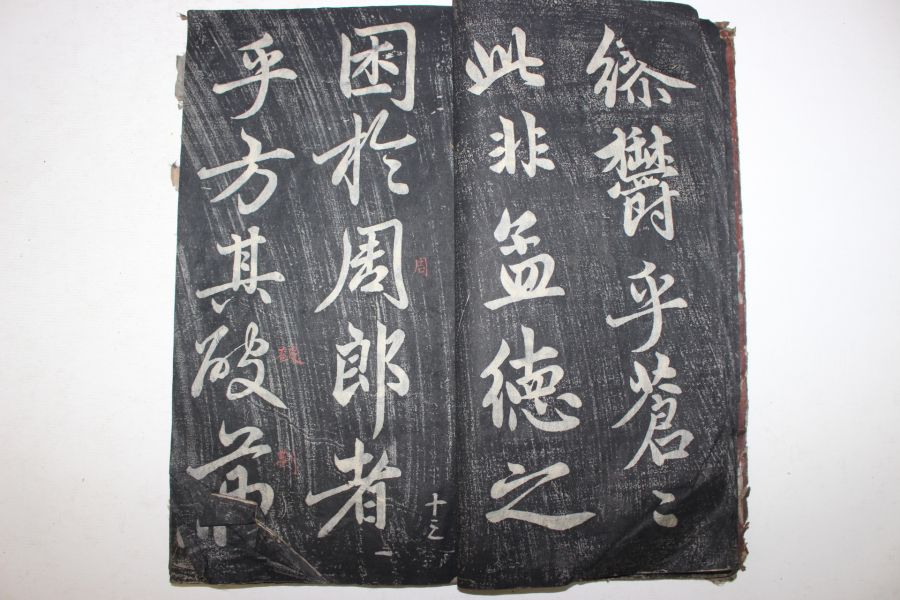 繆鬱乎蒼〻
此非孟德之
困於周郎者
周
十三
乎方其破荊